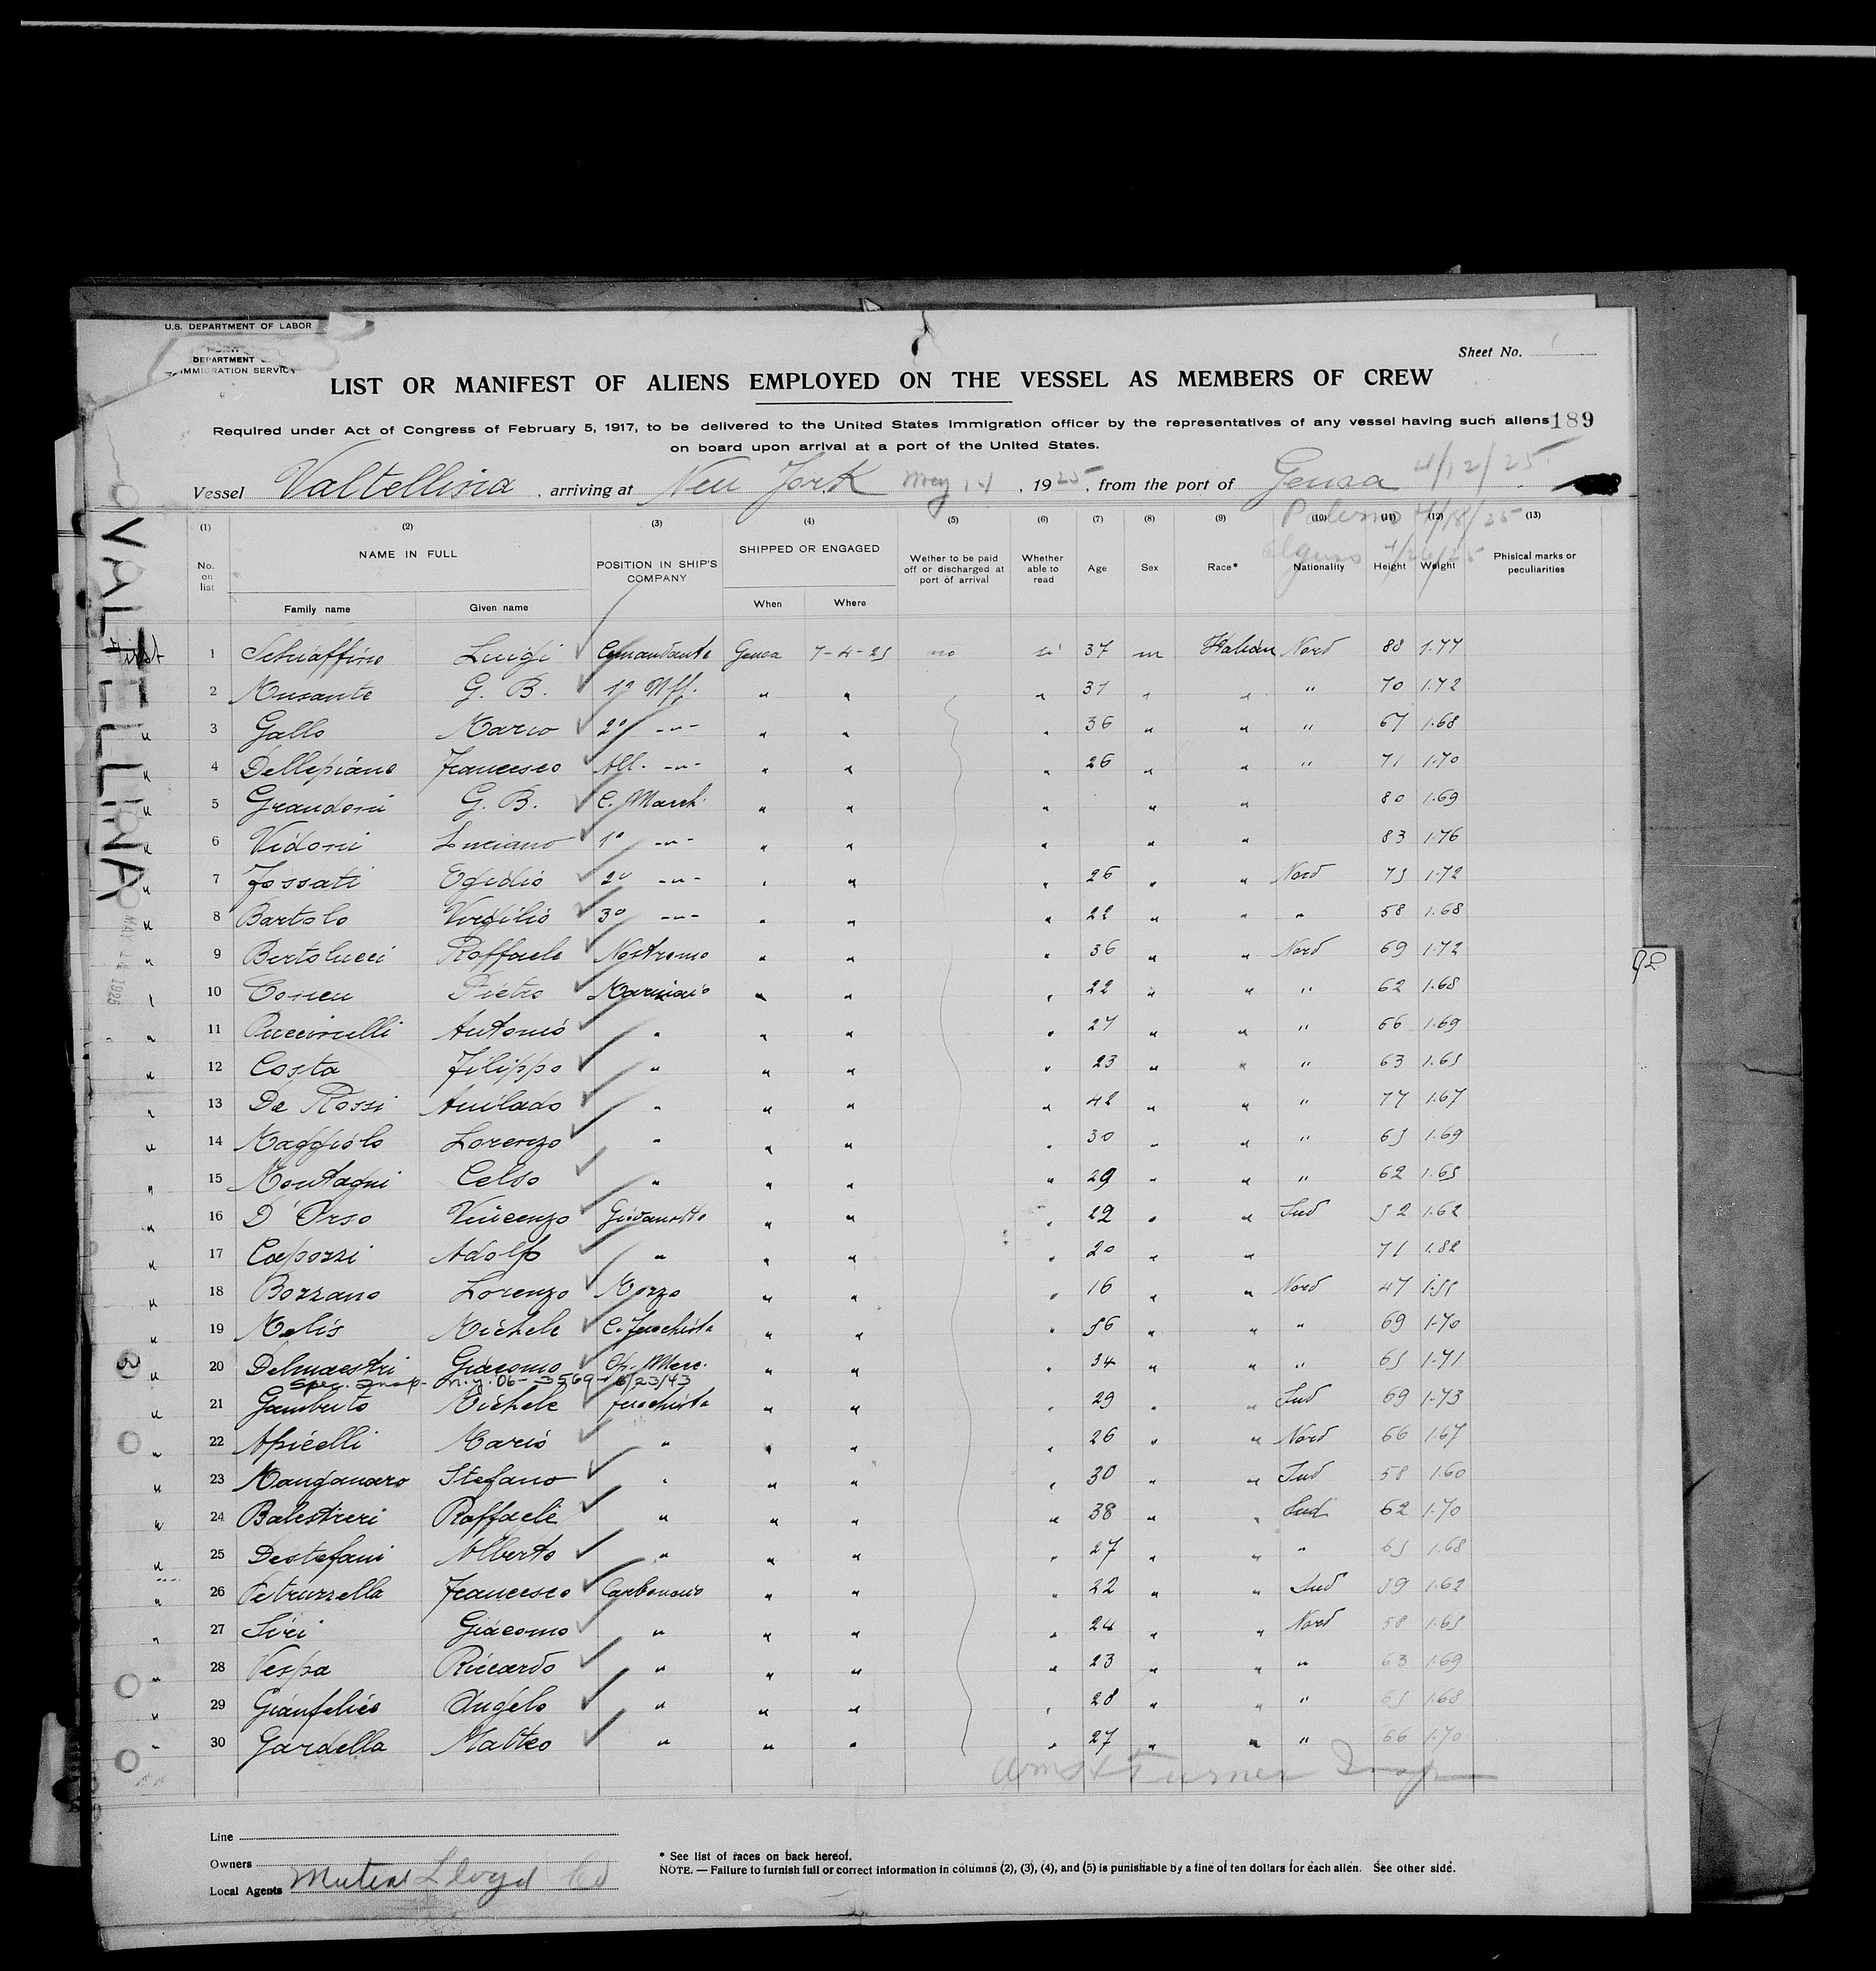 U.S. DEPARTMENT OF LABOR
DEPARTMENT
IMMIGRATION SERVICE
Sheet No.
LIST OR MANIFEST OF ALIENS EMPLOYED ON THE VESSEL AS MEMBERS OF CREW
Required under Act of Congress of February 5, 1917, to be delivered to the United States Immigration officer by the representatives of any vessel having such aliens 189
on board upon arrival at a port of the United States.
Vessel Valtellina , arriving at New York May 14 , 1925 , from the port of Genoa 4/12/25
Palermo 4/18/25
VALTELLINA
MAY 14 1925
(1) (2) (3) (4) (5) (6) (7) (8) (9) (10) (11) (12) (13)
No. on list NAME IN FULL POSITION IN SHIP'S COMPANY SHIPPED OR ENGAGED Wether to be paid off or discharged at port of arrival Whether able to read Age Sex Race* Nationality Height Weight Phisical marks or peculiarities
Family name Given name When Where
first 1 Schiaffino Luigi Comandante Genoa 7-4-25 no si 37 m Italian Nord 80 1.77
" 2 Musante G. B. 1° Uff. " " " 31 " " " 70 1.72
" 3 Gallo Mario 2° -"- " " " 36 " " " 67 1.68
" 4 Dellepiane Francesco All. -"- " " " 26 " " " 71 1.70
" 5 Grandoni G. B. C. Macch. " " " " " 80 1.69
" 6 Vidoni Luciano 1° -"- " " " " " 83 1.76
" 7 Fossati Egidio 2° -"- " " " 26 " " Nord 75 1.72
" 8 Bartolo Virgilio 3° -"- " " " 22 " " " 58 1.68
" 9 Bertolucci Raffaele Nostromo " " " 36 " " Nord 69 1.72
" 10 Pietro Marinaio " " " 22 " " " 62 1.68
" 11 Puccinelli Antonio " " " " 27 " " " 66 1.69
" 12 Costa Filippo " " " " 23 " " " 63 1.65
" 13 De Rossi " " " " 42 " " " 77 1.67
" 14 Maggiolo Lorenzo " " " " 30 " " " 65 1.69
" 15 Montagni Celso " " " " 29 " " " 62 1.65
" 16 D'Orso Vincenzo Giovanotto " " " 29 " " Sud 52 1.62
" 17 Capozzi Adolfo " " " " 20 " " 71 1.82
" 18 Bozzano Lorenzo Mozzo " " " 16 " " Nord 47 1.55
" 19 Melis Michele C. Fuochista " " " 56 " " " 69 1.70
" 20 Delmaestri Giacomo Op. Mecc. " " " 34 " " " 65 1.71
Spec. Insp. - N.Y. 06-3569- 6/23/43
" 21 Gamberto Michele Fuochista " " " 29 " " Sud 69 1.73
" 22 Apicelli Mario " " " " 26 " " Nord 66 1.67
" 23 Manganaro Stefano " " " " 30 " " Sud 58 1.60
" 24 Balestrieri Raffaele " " " " 38 " " Sud 62 1.70
" 25 Destefani Alberto " " " " 27 " " " 65 1.68
" 26 Petruzzella Francesco Carbonaio " " " 22 " " Sud 59 1.62
" 27 Siri Giacomo " " " " 24 " " Nord 58 1.65
" 28 Vespa Riccardo " " " " 23 " " " 63 1.69
" 29 Gianfelice Angelo " " " " 28 " " " 65 1.68
" 30 Gardella Matteo " " " " 27 " " " 66 1.70
Turner Insp
Line
Owners
Local Agents Lloyd
* See list of races on back hereof.
NOTE. — Failure to furnish full or correct information in columns (2), (3), (4), and (5) is punishable by a fine of ten dollars for each alien. See other side.